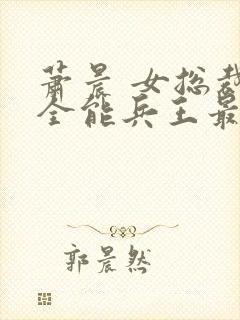 萧晨 女总裁
全能兵王最
郭晨然